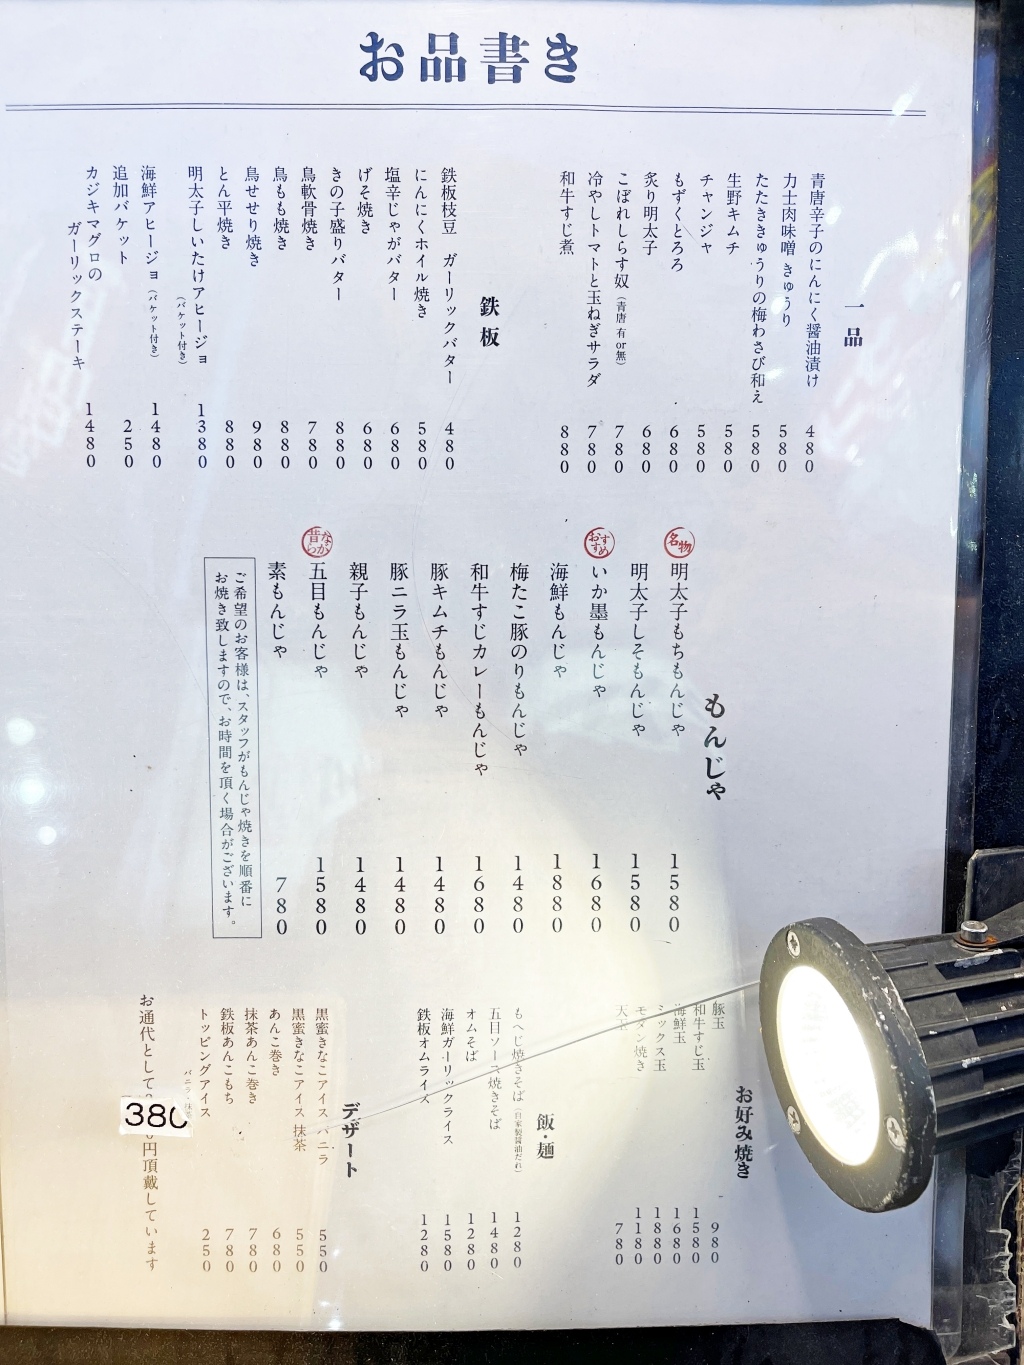 お品書き
一品
青唐辛子のにんにく醤油漬け 480
力士肉味噌 きゅうり 580
たたききゅうりの梅わさび和え 580
生野キムチ 580
チャンジャ 580
もずくとろろ 680
炙り明太子 680
こぼれしらす奴（青唐 有or無） 780
冷やしトマトと玉ねぎサラダ 780
和牛すじ煮 880
鉄板
鉄板枝豆 ガーリックバター 480
にんにくホイル焼き 580
塩辛じゃがバター 680
げそ焼き 680
きの子盛りバター 880
鳥軟骨焼き 780
鳥もも焼き 880
鳥せせり焼き 980
とん平焼き 880
明太子しいたけアヒージョ（バケット付き） 1380
海鮮アヒージョ（バケット付き） 1480
追加バケット 250
カジキマグロの
ガーリックステーキ 1480
もんじゃ
名物 明太子もちもんじゃ 1580
明太子しそもんじゃ 1580
おすすめ いか墨もんじゃ 1680
海鮮もんじゃ 1880
梅たこ豚のりもんじゃ 1480
和牛すじカレーもんじゃ 1680
豚キムチもんじゃ 1480
豚ニラ玉もんじゃ 1480
親子もんじゃ 1480
昔ながら 五目もんじゃ 1580
素もんじゃ 780
ご希望のお客様は、スタッフがもんじゃ焼きを順番に
お焼き致しますので、お時間を頂く場合がございます。
お好み焼き
豚玉 980
和牛すじ玉 1580
海鮮玉 1680
ミックス玉 1880
モダン焼き 1180
天玉 780
飯・麺
もへじ焼きそば（自家製醤油だれ） 1280
五目ソース焼きそば 1480
オムそば 1280
海鮮ガーリックライス 1580
鉄板オムライス 1280
デザート
黒蜜きなこアイス バニラ 550
黒蜜きなこアイス 抹茶 550
あんこ巻き 680
抹茶あんこ巻き 780
鉄板あんこもち 780
トッピングアイス バニラ・抹茶 250
お通代として380円頂戴しています